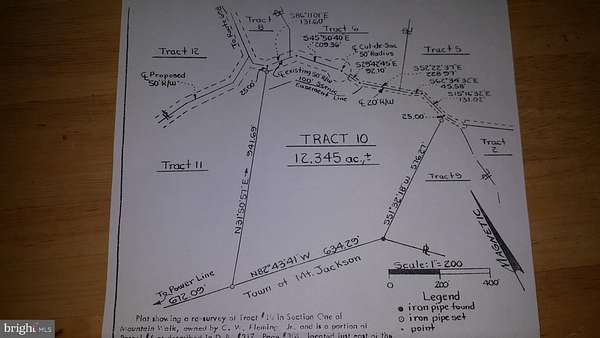 Tract 12
Tract 8
S86°11'01"E
131.60'
Tract 6
S45°50'40"E
209.36'
₵ Cul-de-Sac
50' Radius
Tract 5
S29°42'45"E
92.10'
S52°22'37"E
228.97'
S62°34'32"E
45.58'
S15°16'32"E
131.02'
₵ Proposed
50' R/W
₵ Existing 50' R/W
Easement Line
₵ 20' R/W
25.00'
25.00'
TRACT 10
12.345 ac.,±
Tract 11
N31°50'57"E
941.69'
S51°32'18"W 576.27'
Tract 2
Tract 9
N82°43'41"W 634.29'
Town of Mt. Jackson
To Power Line
672.09'
MAGNETIC
Scale: 1"=200'
0 200' 400'
Legend
iron pipe found
iron pipe set
point
Plot showing a re-survey of Tract #10 in Section One of
Mountain Walk, owned by C. W. Fleming, Jr. and is a portion of
bright MLS